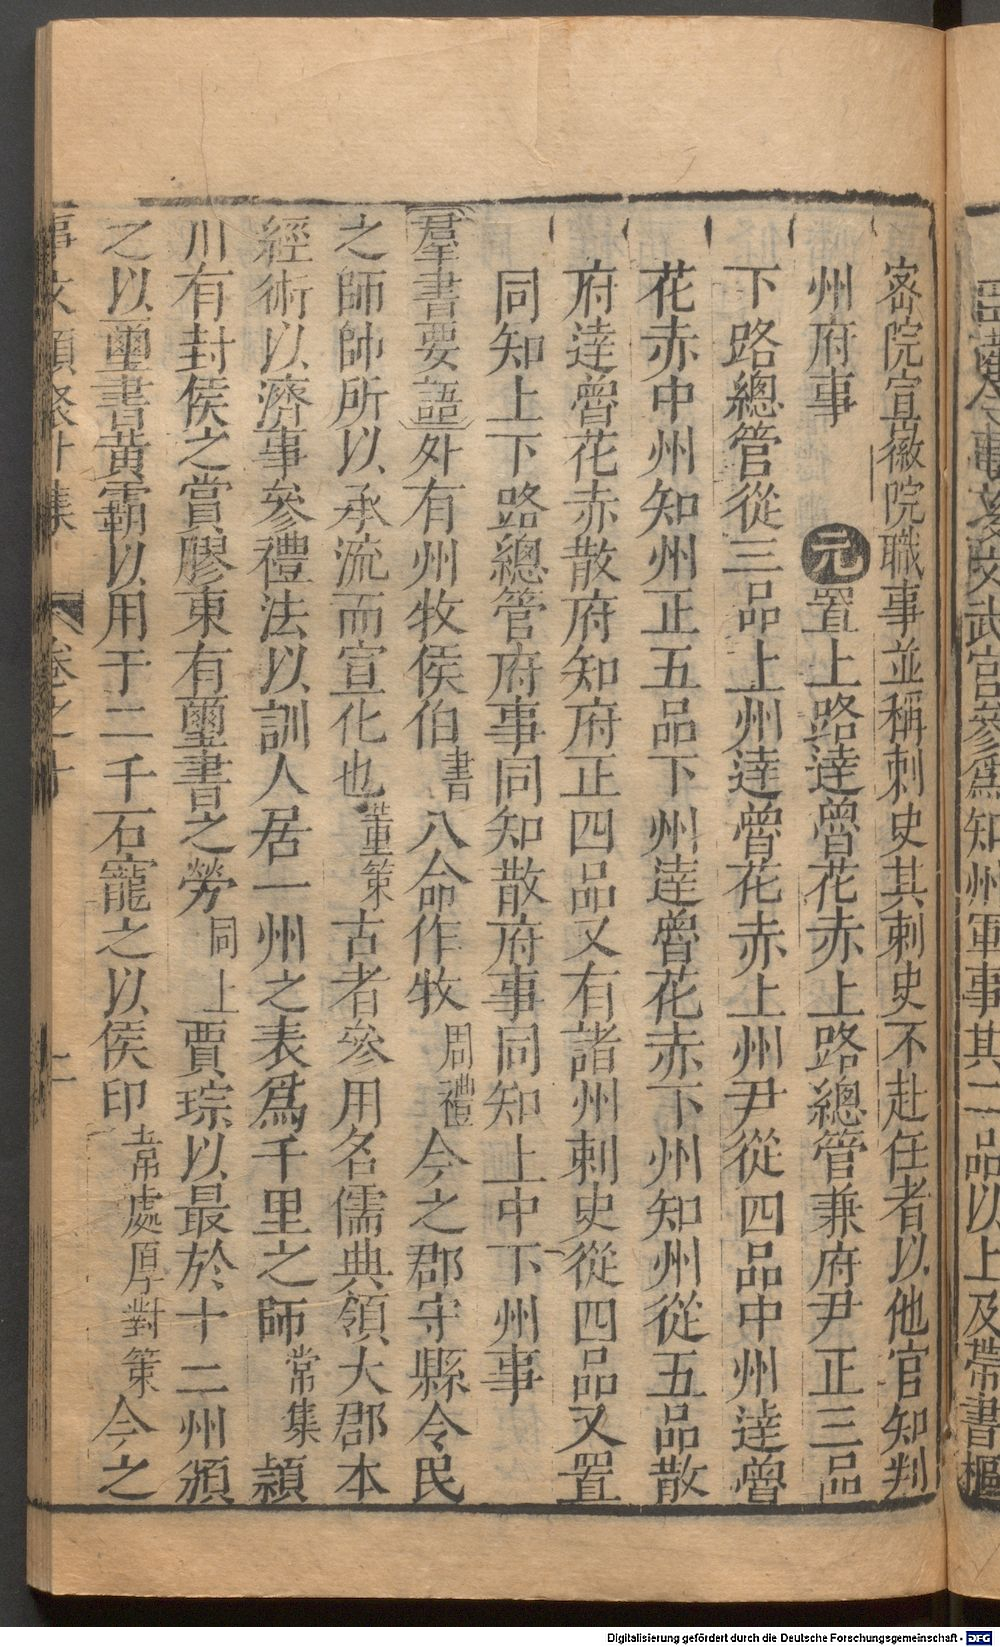 出藍令事文武官參爲知州軍事其二品以上及帶書樞
密院宣徽院職事並稱刺史其刺史不赴任者以他官知判
州府事 元置上路達魯花赤上路總管兼府尹正三品
下路總管從三品上州達魯花赤上州尹從四品中州達魯
花赤中州知州正五品下州達魯花赤下州知州從五品散
府達魯花赤散府知府正四品又有諸州刺史從四品又置
同知上下路總管府事同知散府事同知上中下州事
羣書要語外有州牧侯伯書八命作牧周禮今之郡守縣令民
之師帥所以承流而宣化也董策古者參用名儒典領大郡本
經術以濟事參禮法以訓人居一州之表爲千里之師常集潁
川有封侯之賞膠東有璽書之勞同上賈琮以最於十二州頒
之以璽書黃霸以用于二千石寵之以侯印常處厚對策今之
事文類聚外集 卷之十 上
Digitalisierung gefördert durch die Deutsche Forschungsgemeinschaft - DFG